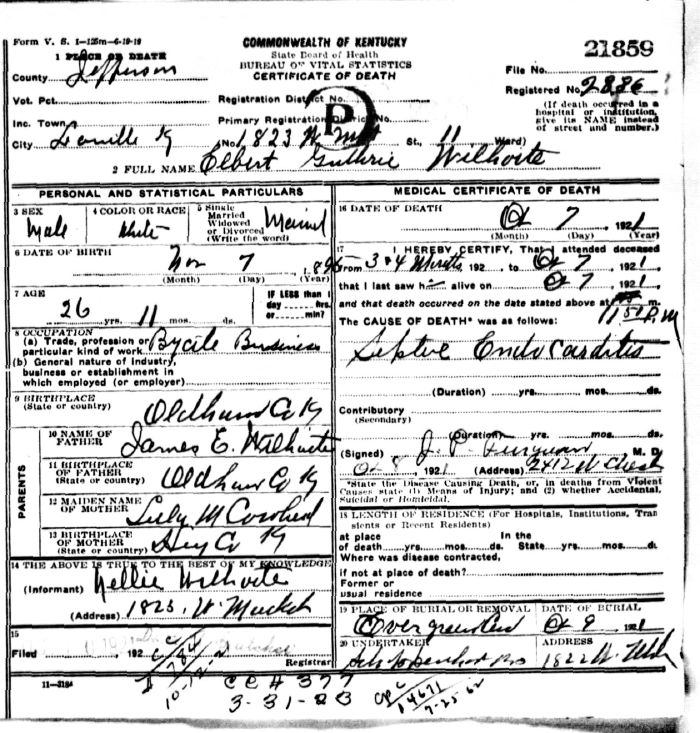 Form V. S. 1-125m-6-19-19
COMMONWEALTH OF KENTUCKY
State Board of Health
BUREAU OF VITAL STATISTICS
CERTIFICATE OF DEATH
21859
1 PLACE OF DEATH
County Jefferson
File No.
Registered No. 2886
Vot. Pct.
Registration District No.
(If death occurred in a hospital or institution, give its NAME instead of street and number.)
Inc. Town
Primary Registration District No.
R
City Louisville Ky (No. 1823 W St., 11 Ward)
2 FULL NAME Elbert Guthrie Wilhoite
PERSONAL AND STATISTICAL PARTICULARS
3 SEX
Male
4 COLOR OR RACE
White
5 Single
Married
Widowed
or Divorced
(Write the word)
Married
6 DATE OF BIRTH
Nov 7 1895
(Month) (Day) (Year)
7 AGE
26 yrs. 11 mos. ds.
IF LESS than 1
day hrs.
or min?
8 OCCUPATION
(a) Trade, profession or
particular kind of work Bycicle Business
(b) General nature of Industry,
business or establishment in
which employed (or employer)
9 BIRTHPLACE
(State or country)
Oldham Co Ky
PARENTS
10 NAME OF
FATHER James E. Wilhoite
11 BIRTHPLACE
OF FATHER
(State or country) Oldham Co Ky
12 MAIDEN NAME
OF MOTHER Lily M
13 BIRTHPLACE
OF MOTHER
(State or country) Co Ky
14 THE ABOVE IS TRUE TO THE BEST OF MY KNOWLEDGE
(Informant) Nellie Wilhoite
(Address) 1823 W. Market
15
Filed 192
Registrar
11-3184
MEDICAL CERTIFICATE OF DEATH
16 DATE OF DEATH
Oct 7 1921
(Month) (Day) (Year)
17 I HEREBY CERTIFY, That I attended deceased
from 3 & 4 Months 192 to Oct 7 1921
that I last saw h alive on Oct 7 1921
and that death occurred on the date stated above at m.
11 50 P.M
The CAUSE OF DEATH* was as follows:
Septic Endocarditis
(Duration) yrs. mos. ds.
Contributory
(Secondary)
(Duration) yrs. mos. ds.
(Signed) J. P. Ferguson M. D.
Oct 8 1921 (Address) 2412 W Chest
*State the Disease Causing Death, or, in deaths from Violent
Causes state (1) Means of Injury; and (2) whether Accidental,
Suicidal or Homicidal.
18 LENGTH OF RESIDENCE (For Hospitals, Institutions, Tran
sients or Recent Residents)
at place In the
of death yrs. mos. ds. State yrs. mos. ds.
Where was disease contracted,
if not at place of death?
Former or
usual residence
19 PLACE OF BURIAL OR REMOVAL
DATE OF BURIAL
Oct 9 1921
20 UNDERTAKER
ADDRESS
1822 W.
10-12-2
CCH 377
3-31-23
14671
7-25-62